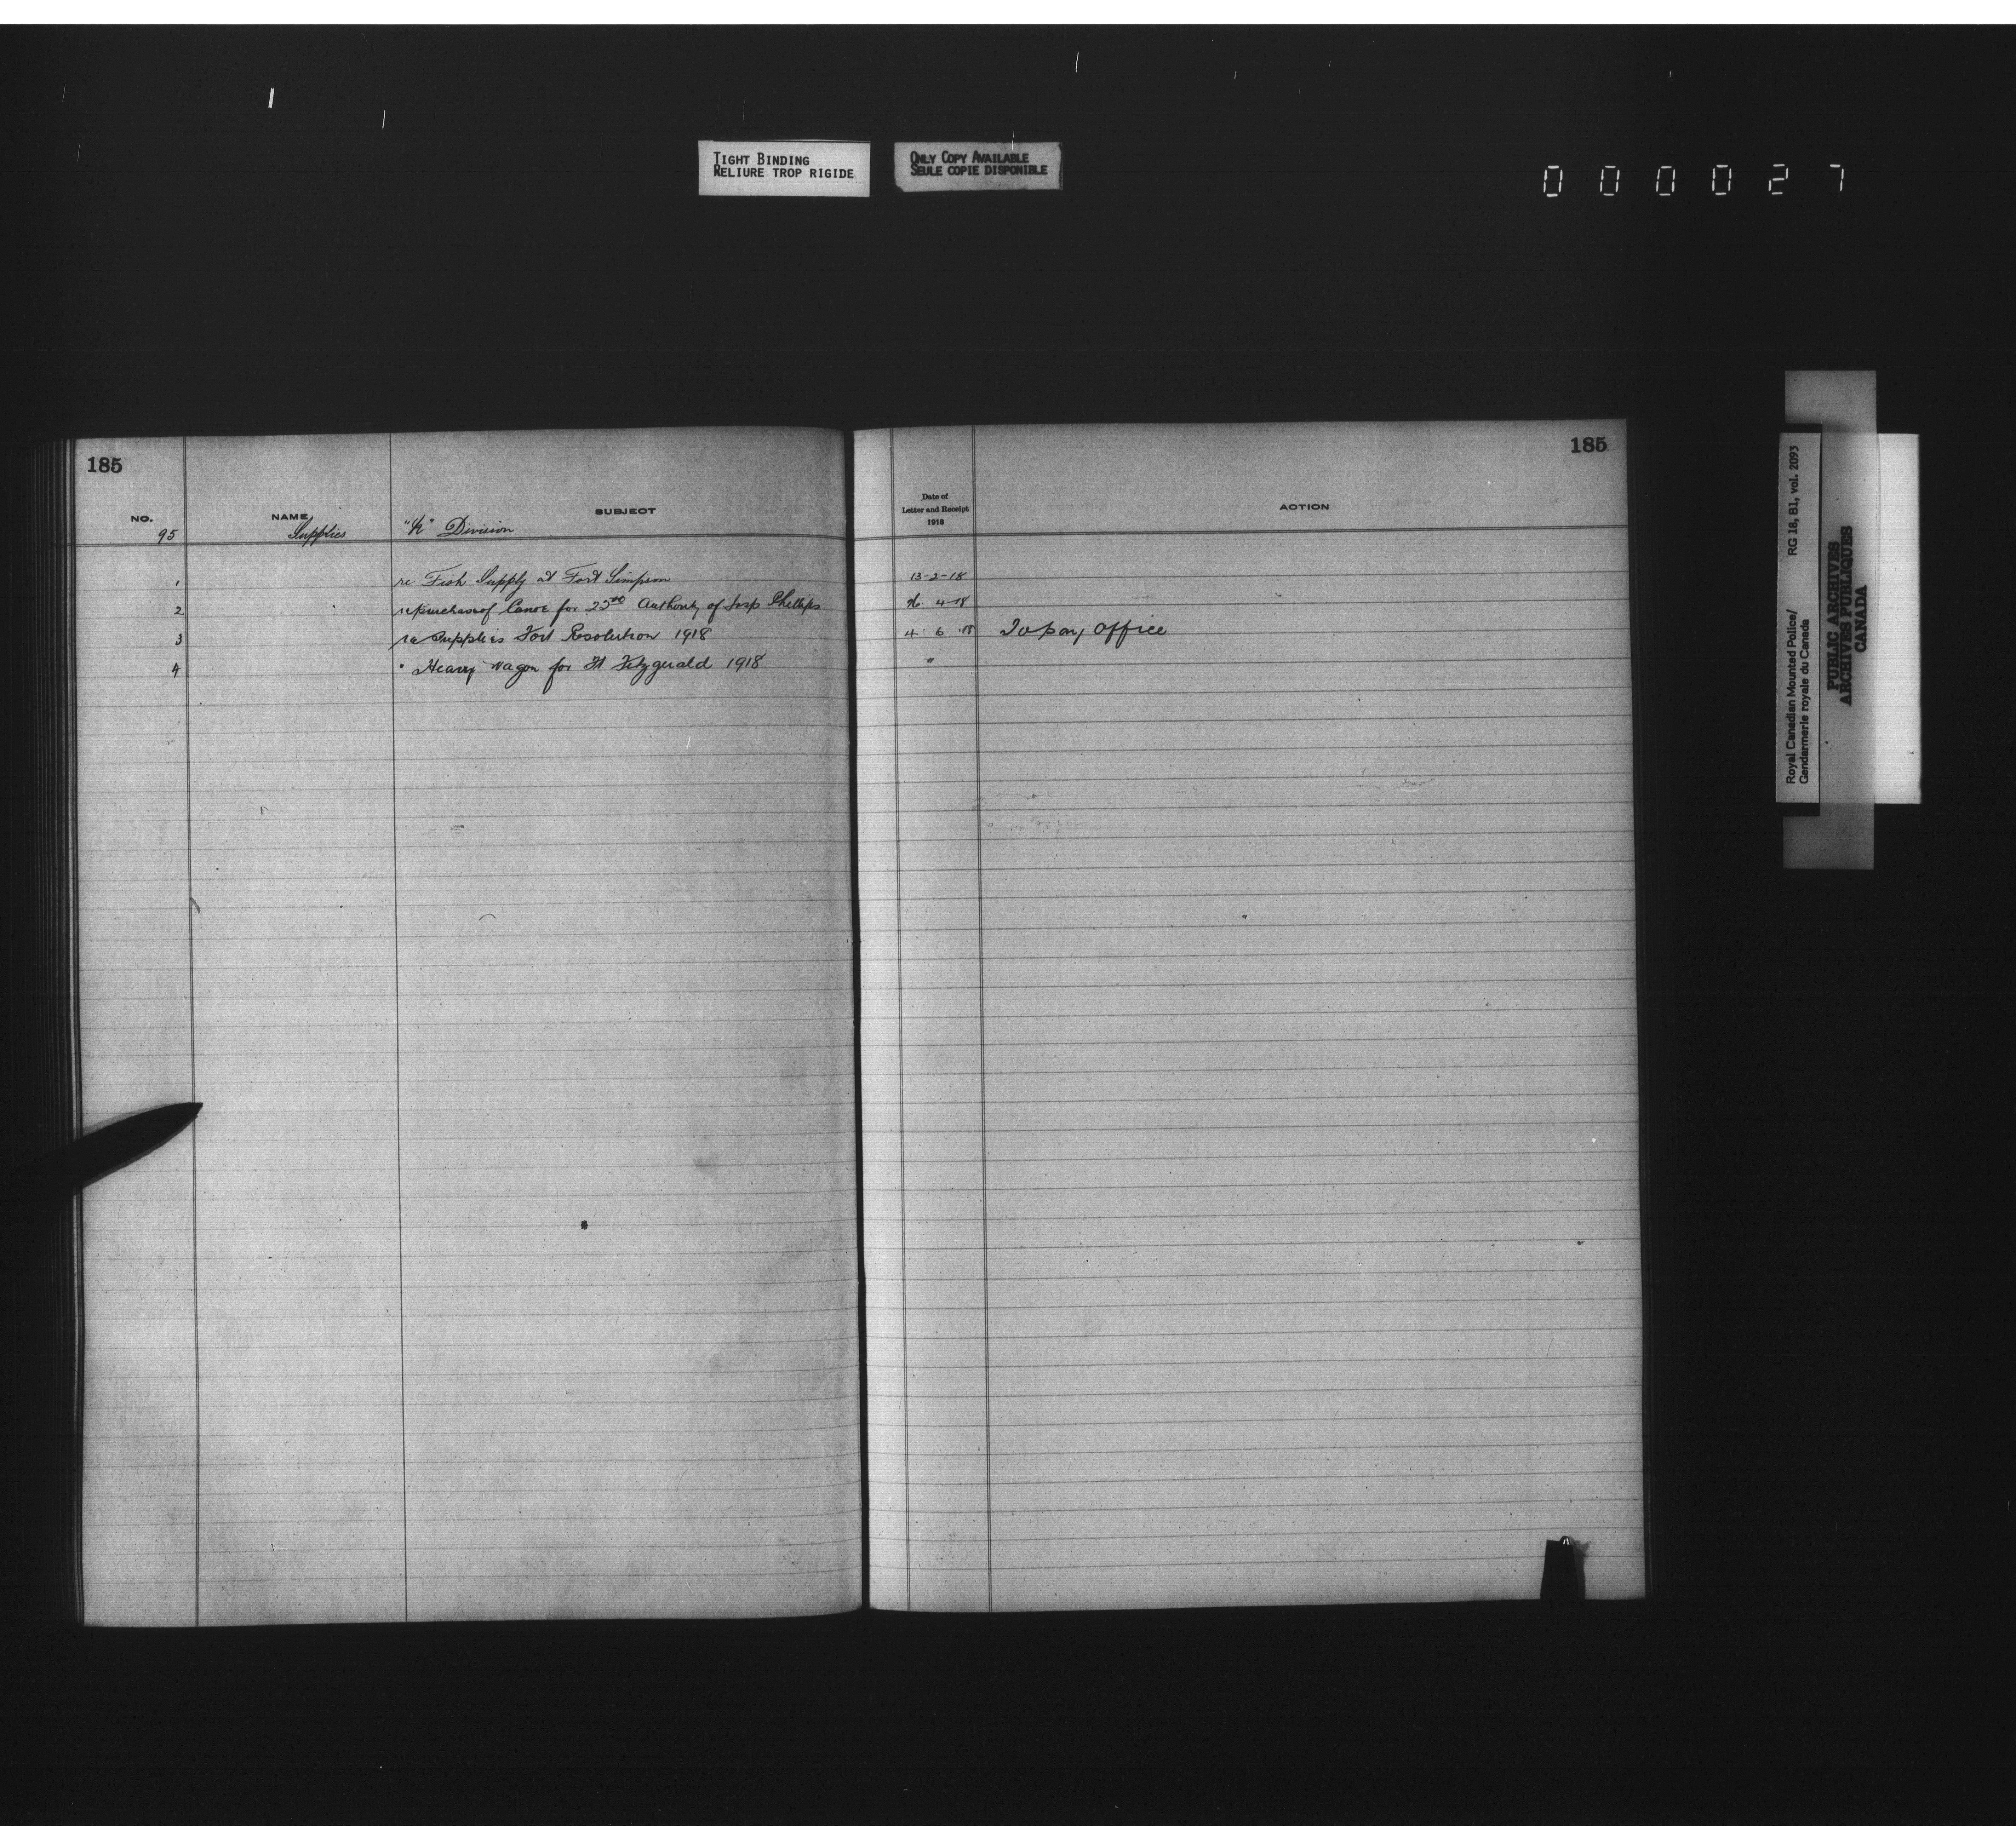 TIGHT BINDING
RELIURE TROP RIGIDE
ONLY COPY AVAILABLE
SEULE COPIE DISPONIBLE
000027
185
NO. NAME SUBJECT
95 Supplies "K" Division
1 re Fish Supply at Fort Simpson
2 re purchase of Canoe for 25⁰⁰ Authority of Insp Phillips
3 re Supplies Fort Resolution 1918
4 " Heavy Wagon for Ft Fitzgerald 1918
185
Date of
Letter and Receipt
1918
ACTION
13-2-18
4-18
4 6 18 To pay Office
"
Royal Canadian Mounted Police/
Gendarmerie royale du Canada
RG 18, B1, vol. 2093
PUBLIC ARCHIVES
ARCHIVES PUBLIQUES
CANADA